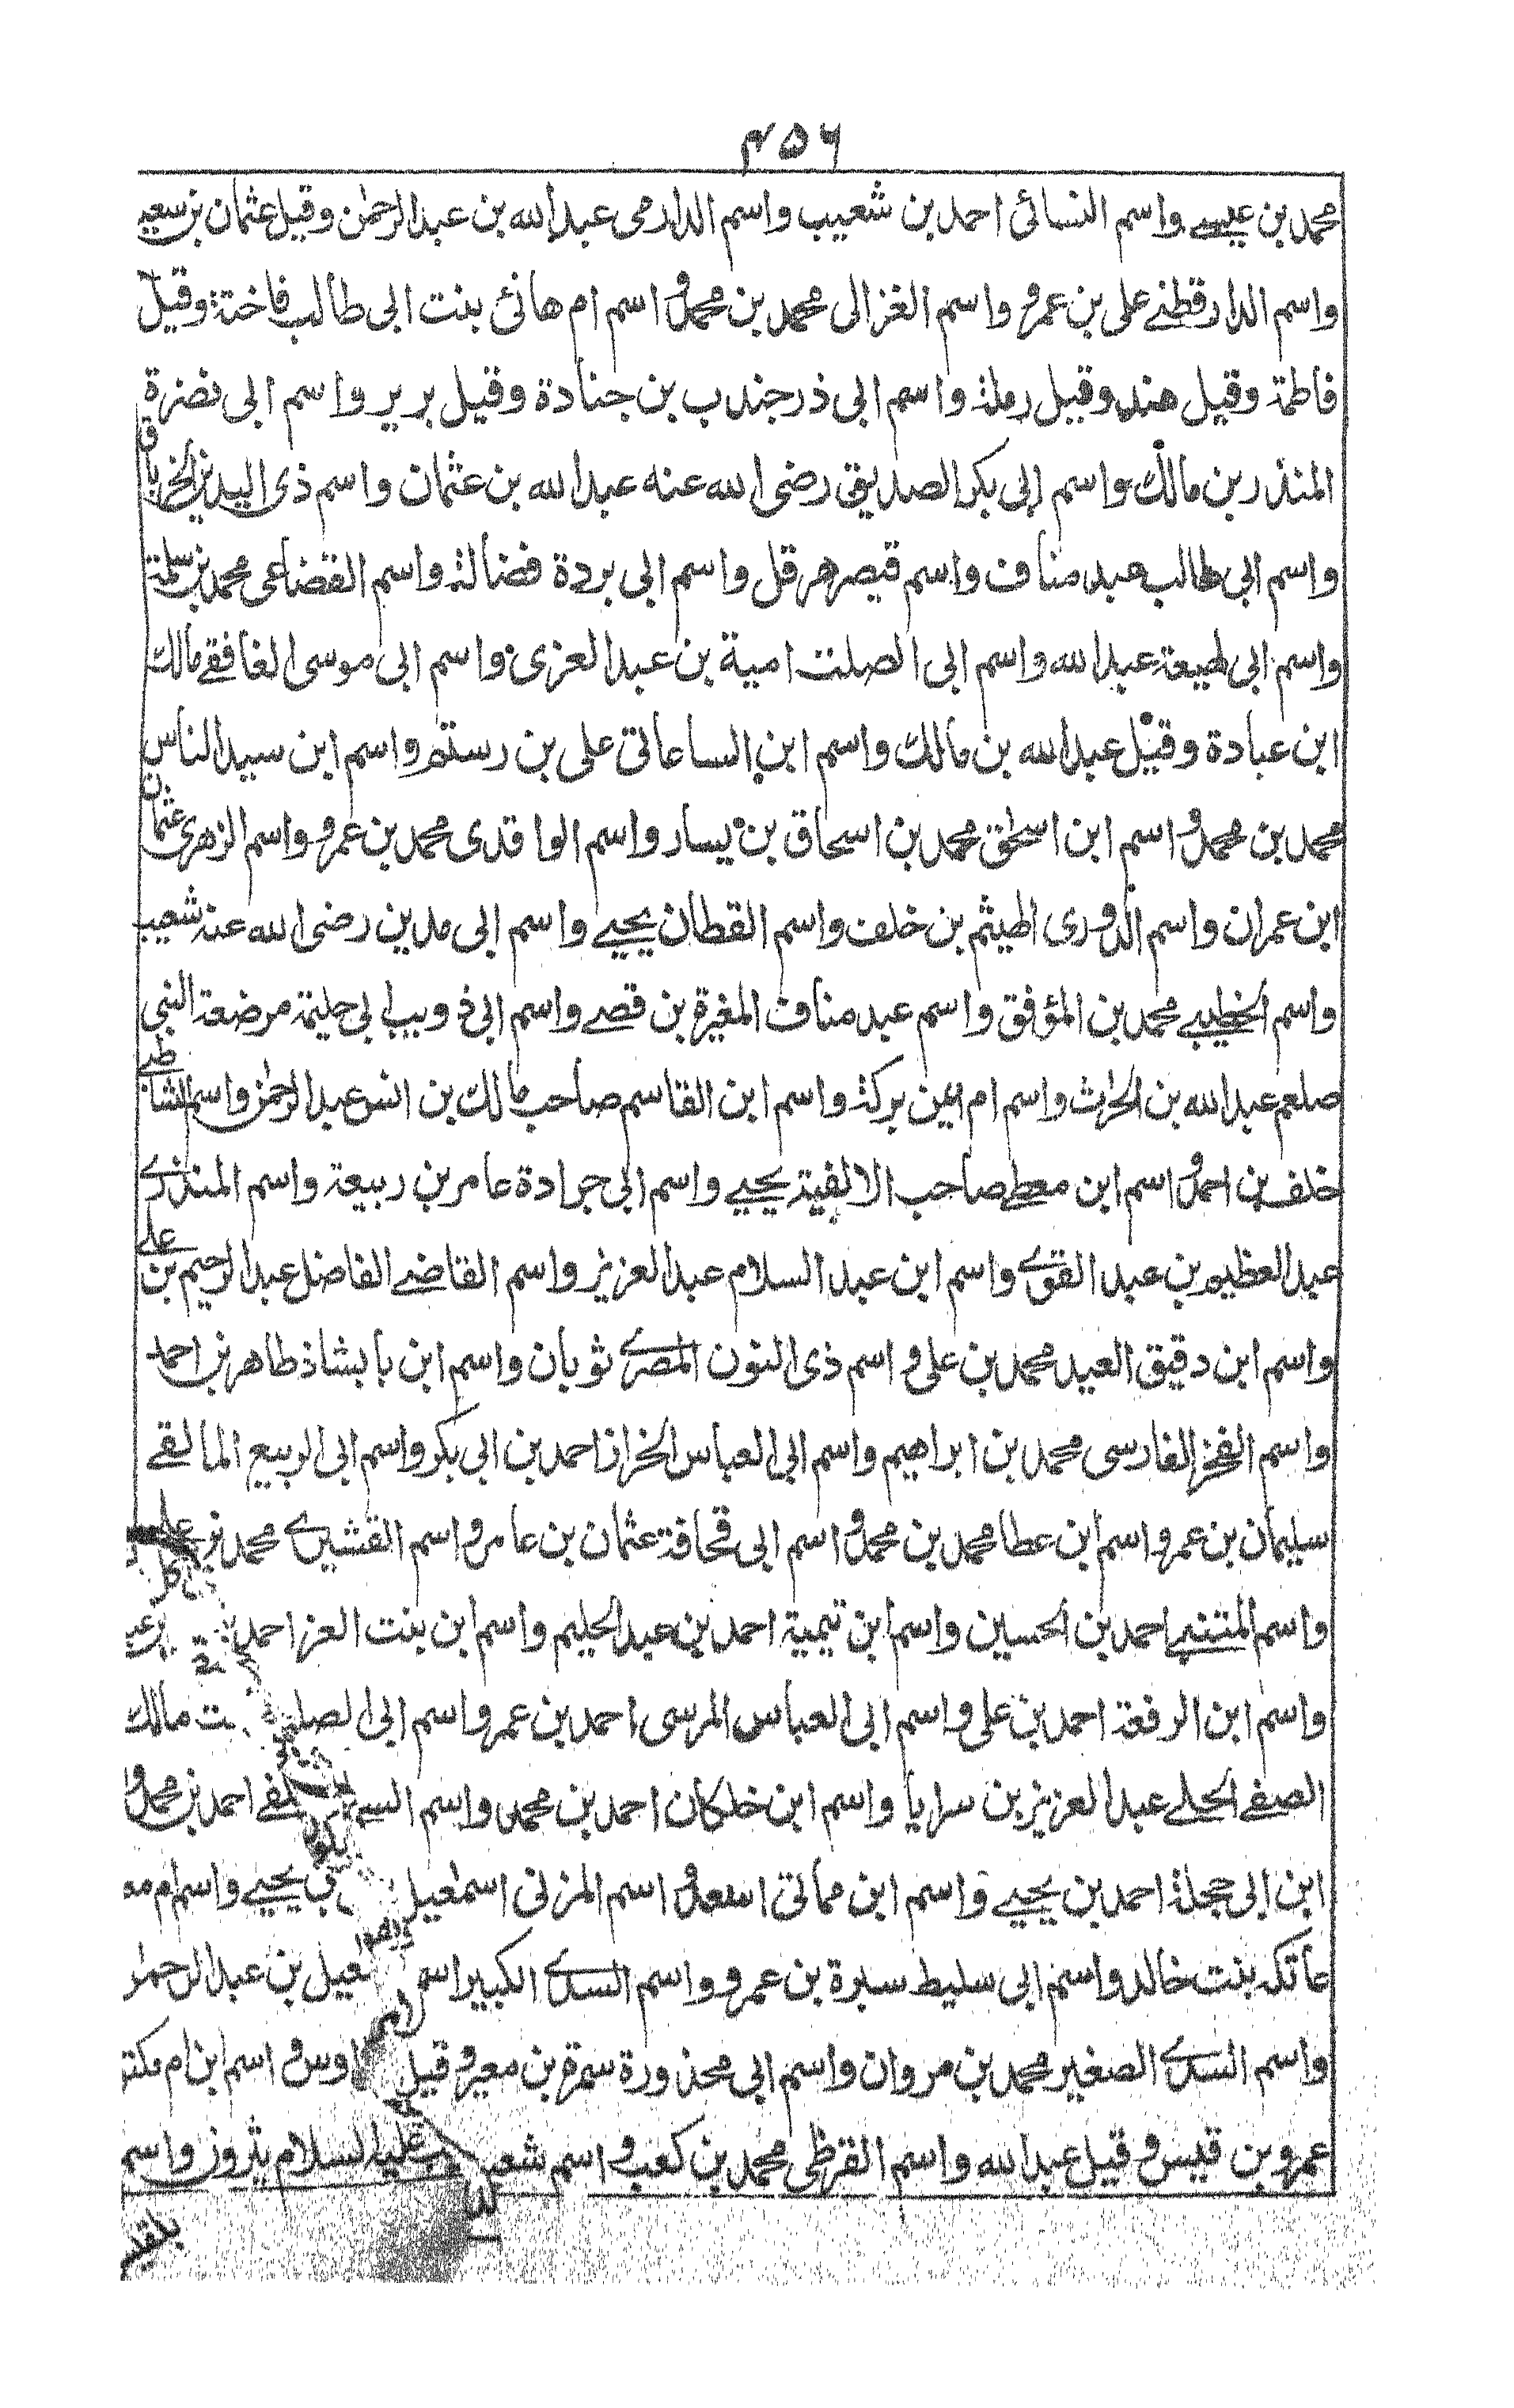 ۴۵۶
محمد بن عيسے واسم النسائى احمد بن شعيب واسم الدارمى عبد الله بن عبد الرحمٰن وقيل عثمان بن سعيد
واسم الدارقطنے على بن عمر و واسم الغزالى محمد بن محمد و اسم ام هانئ بنت ابى طالب فاختة وقيل
فاطمة وقيل هند وقيل رملة واسم ابى ذر جندب بن جنادة وقيل برير واسم ابى نضرة
المنذر بن مالك واسم ابى بكر الصديق رضى الله عنه عبد الله بن عثمان واسم ذى اليدين الخرباق
واسم ابى طالب عبد مناف واسم قيصر هرقل واسم ابى بردة فضالة واسم القضاعى محمد بن سلمة
واسم ابى لهيعة عبد الله واسم ابى الصلت امية بن عبد العزى واسم ابى موسى الغافقے مالك
ابن عبادة وقيل عبد الله بن مالك واسم ابن الساعاتى على بن رستم واسم ابن سيد الناس
محمد بن محمد و اسم ابن اسحٰق محمد بن اسحاق بن يسار واسم الواقدى محمد بن عمر و واسم الزهرى عثمان
ابن عمران واسم الدورى الهيثم بن خلف واسم القطان يحيے واسم ابى مدين رضى الله عنه شعيب
واسم الخطيب محمد بن المؤفق واسم عبد مناف المغيرة بن قصے واسم ابى ذويب ابى حليمة مرضعة النبى
صلعم عبد الله بن الحرث واسم ام ايمن بركة واسم ابن القاسم صاحب مالك بن انس عبد الرحمٰن واسم الشاطبے
خلف بن احمد و اسم ابن معطے صاحب الالفية يحيے واسم ابى جرادة عامر بن ربيعة واسم المنذرے
عبد العظيم بن عبد القوے واسم ابن عبد السلام عبد العزيز واسم القاضے الفاضل عبد الرحيم بن علے
واسم ابن دقيق العيد محمد بن على و اسم ذى النون المصرے ثوبان واسم ابن بابشاذ طاهر بن احمد
واسم الفخر الفارسى محمد بن ابراهيم واسم ابى العباس الخراز احمد بن ابى بكر واسم ابى الربيع المالقے
سليمان بن عمر و اسم ابن عطا محمد بن محمد و اسم ابى قحافة عثمان بن عامر و اسم القشيرے محمد بن علے
واسم المتنبے احمد بن الحسين واسم ابن تيمية احمد بن عبد الحليم واسم ابن بنت العز احمد
واسم ابن الرفعة احمد بن على و اسم ابى العباس المرسى احمد بن عمر و اسم ابى الصلت مالك
الصفے الحلے عبد العزيز بن سرايا واسم ابن خلكان احمد بن محمد واسم السلفے احمد بن محمد و
ابن ابى حجلة احمد بن يحيے واسم ابن مماتى اسعد و اسم المزنى اسمٰعيل بن يحيے واسم ام
عاتكه بنت خالد واسم ابى سليط سبرة بن عمرو واسم السدے الكبير عيل بن عبد الرحمٰن
واسم السدے الصغير محمد بن مروان واسم ابى محذورة سمرة بن معير و قيل اوس و اسم ابن ام مكتو
عمرو بن قيس و قيل عبد الله واسم القرظى محمد بن كعب و اسم شعيب عليه السلام يثرون واسم
بلقيس